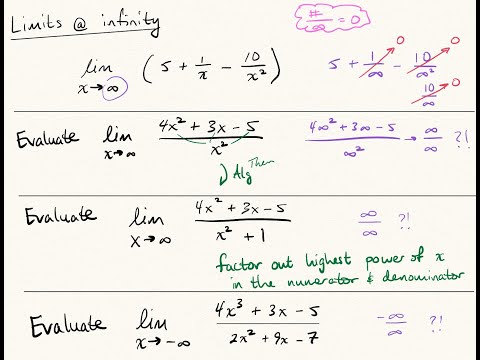 Limits @ infinity
#/∞ = 0
lim x→∞ (5 + 1/x − 10/x²)
5 + 1/∞ − 10/∞²
0 0
10/∞ 0
Evaluate lim x→∞ (4x² + 3x − 5)/x²
(4∞² + 3∞ − 5)/∞² → ∞/∞ ?!
Alg Thm
Evaluate lim x→∞ (4x² + 3x − 5)/(x² + 1)
∞/∞ ?!
factor out highest power of x
in the numerator & denominator
Evaluate lim x→−∞ (4x³ + 3x − 5)/(2x² + 9x − 7)
−∞/∞ ?!